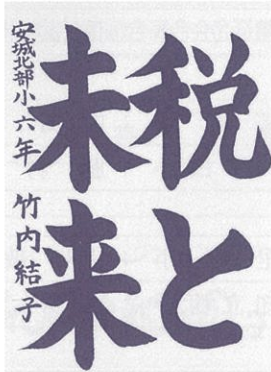 税と
未来
安城北部小六年
竹内結子